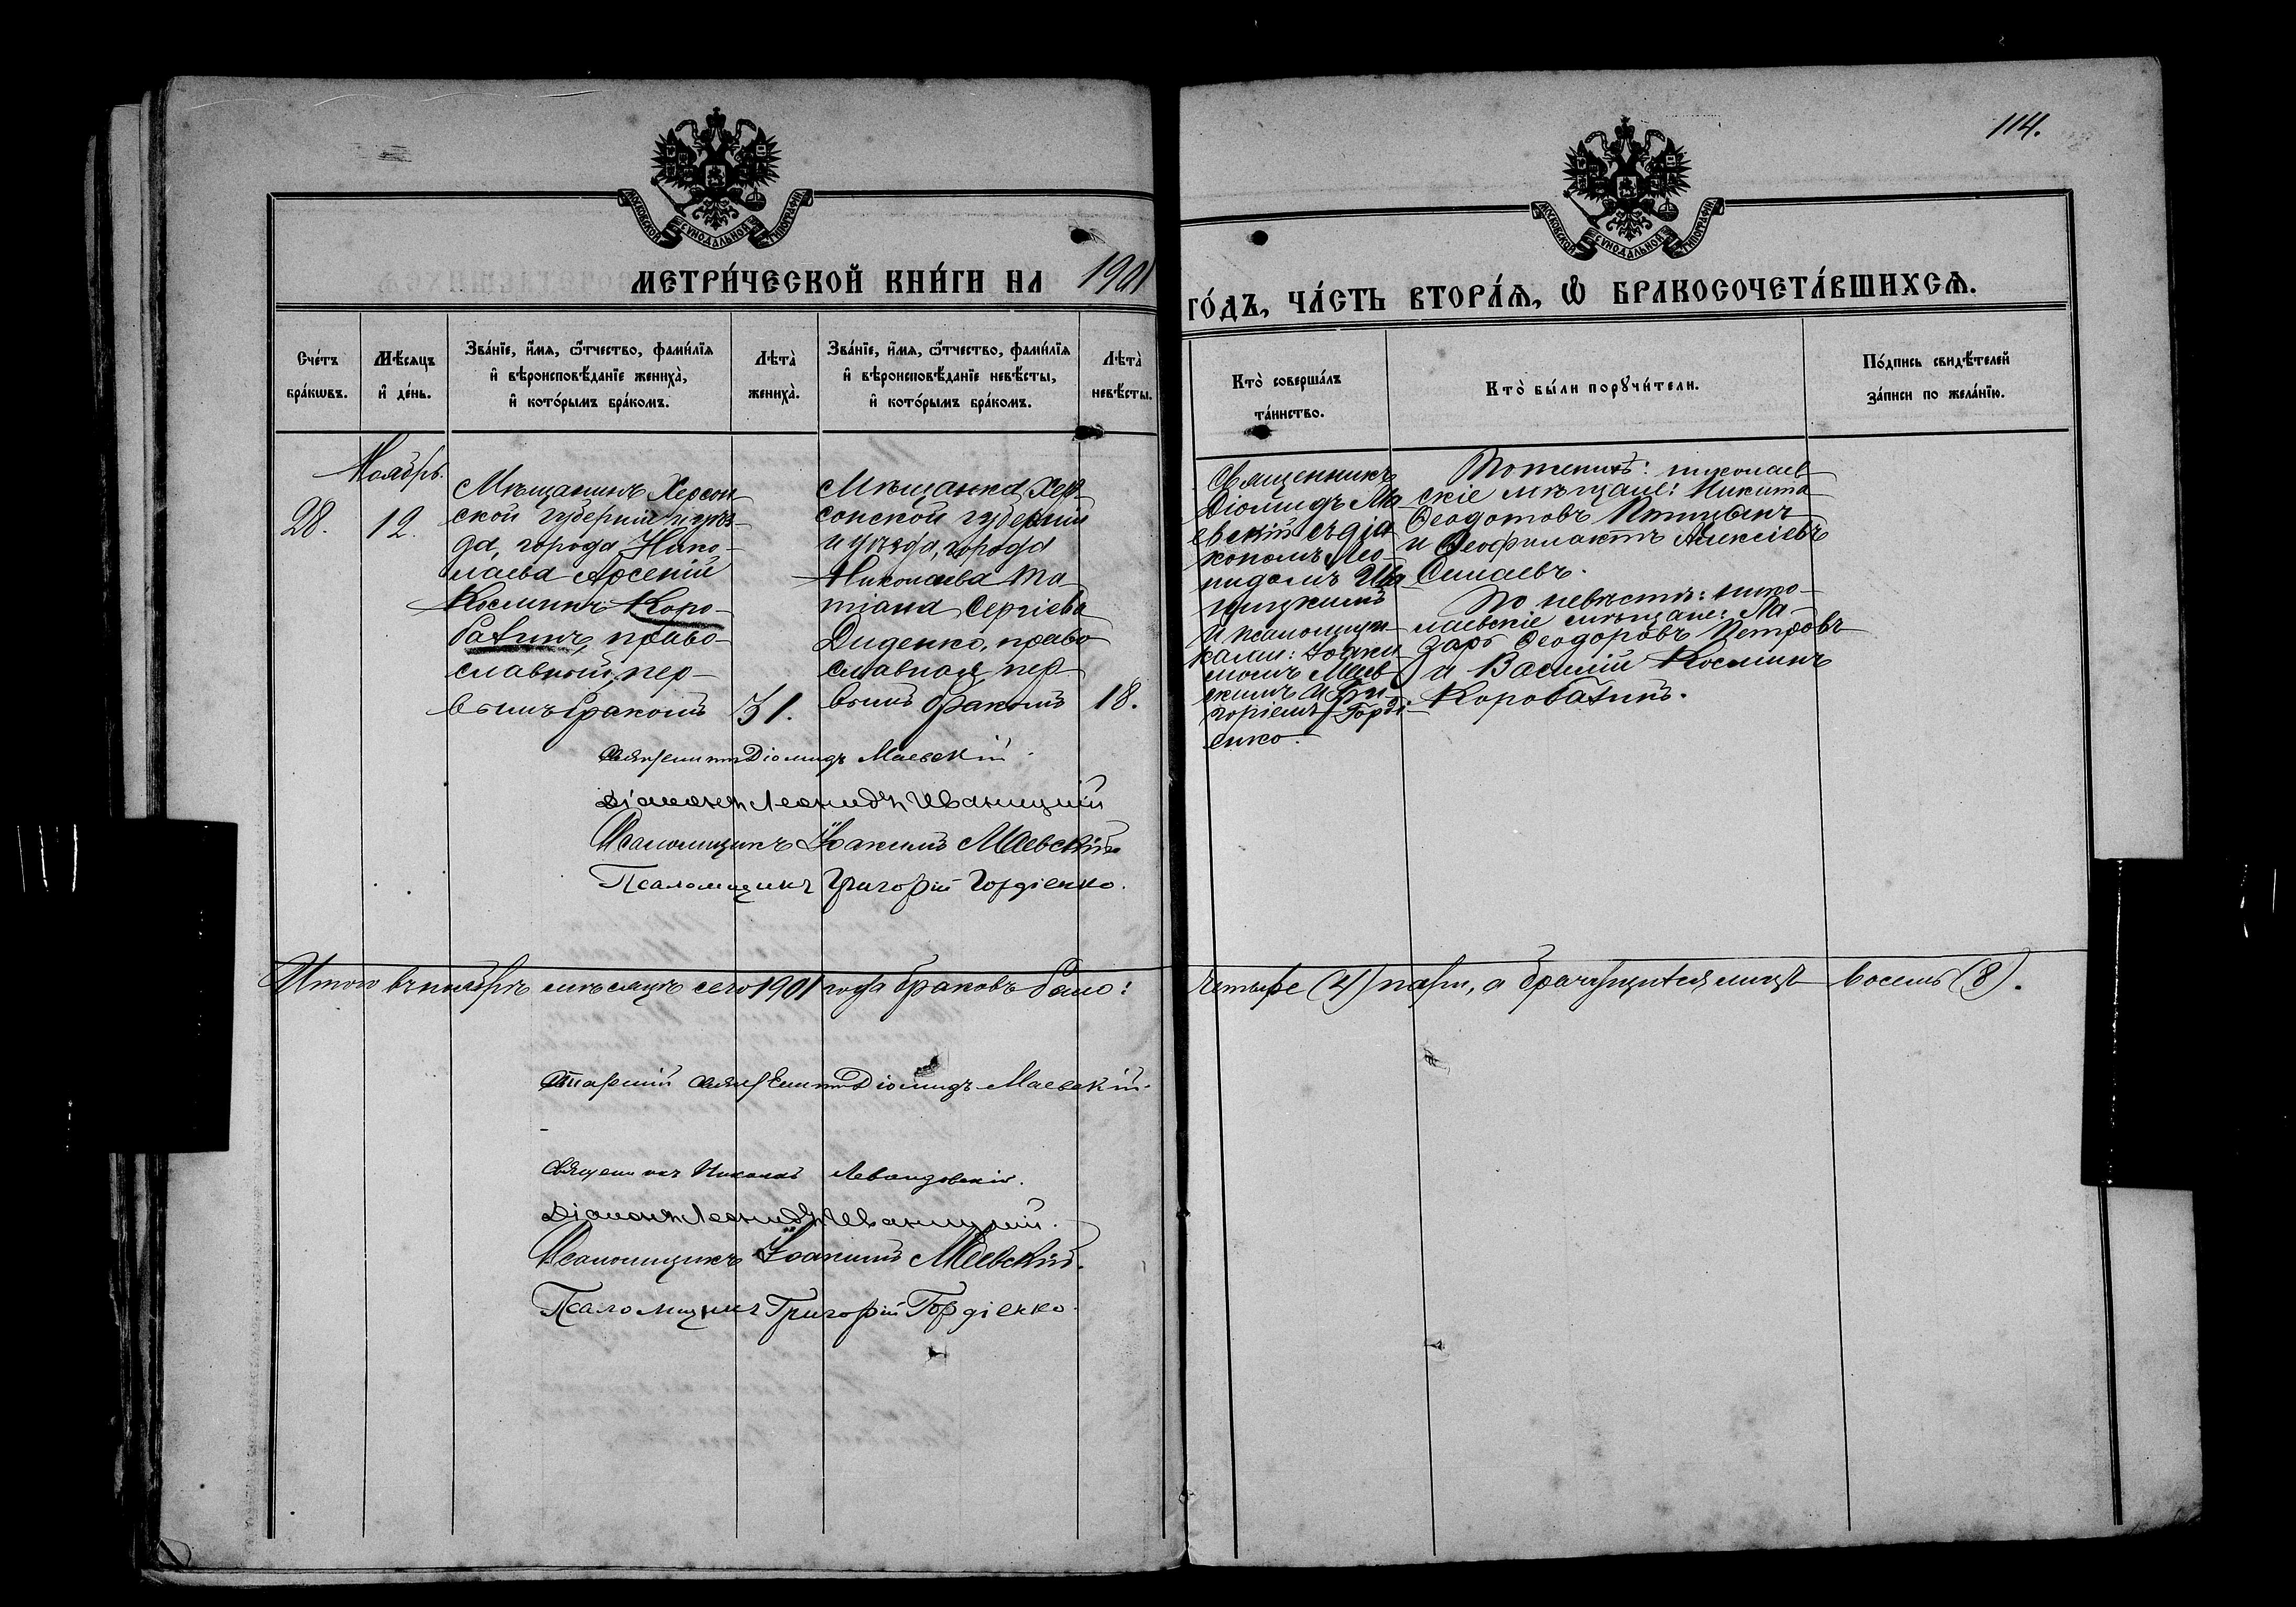 114.
МОСКОВСКОЙ СѴНОДАЛЬНОЙ ТИПОГРАФІИ
МОСКОВСКОЙ СѴНОДАЛЬНОЙ ТИПОГРАФІИ
МЕТРИ́ЧЕСКОЙ КНИ́ГИ НА 1901 ГО́ДЪ, ЧА́СТЬ ВТОРА́Ѧ, Ѽ БРАКОСОЧЕТА́ВШИХСѦ.
Сче́тъ бра́кѡвъ.
Мѣ́сяцъ и҆ де́нь.
Зва́нїе, и҆́мя, ѻ҆́тчество, фами́лїя
и҆ вѣроисповѣ́данїе жениха̀,
и҆ кото́рымъ бра́комъ.
Лѣта̀ жениха̀.
Зва́нїе, и҆́мя, ѻ҆́тчество, фами́лїя
и҆ вѣроисповѣ́данїе невѣ́сты,
и҆ кото́рымъ бра́комъ.
Лѣта̀ невѣ́сты.
Кто̀ соверша́лъ
та́инство.
Кто̀ бы́ли порꙋчи́тели.
По́дпись свидѣ́телей
за́писи по жела́нїю.
Ноябрь.
28.
12.
Мѣщанинъ Херсон-
ской губерніи и уѣз-
да, города Нико-
лаева Арсеній
Косминъ Коро-
баткинъ, право-
славный, пер-
вымъ бракомъ
31.
Мѣщанка Хер-
сонской губерніи
и уѣзда, города
Николаева Та-
тіана Сергіева
Диденко, право
славная, пер-
вымъ бракомъ
18.
Священникъ
Діомидъ Ма-
евскій съ діа-
кономъ Лео-
нидомъ Ива-
ницкимъ
и псаломщи-
ками: Іоаки-
момъ Маев-
скимъ и Гри-
горіемъ Горді-
енко.
По женихѣ: николаев-
скіе мѣщане: Никита
Ѳеодотовъ
и Ѳеофилактъ Алексіевъ
По невѣстѣ: нико-
лаевскіе мѣщане: Ла-
зарь Ѳеодоровъ Петровъ
и Василій Косминъ
Коробаткинъ.
Священникъ Діомидъ Маевскій
Діаконъ Леонидъ Иваницкій
Псаломщикъ Іоакимъ Маевскій
Псаломщикъ Григорій Гордіенко.
Итого въ ноябрѣ мѣсяцѣ сего 1901 года браковъ было: четыре (4) пары, а брачущихся лицъ восемь (8).
Старшій священникъ Діомидъ Маевскій
Священникъ Николай Левандовскій.
Діаконъ Леонидъ Иваницкій.
Псаломщикъ Іоакимъ Маевскій.
Псаломщикъ Григорій Гордіенко